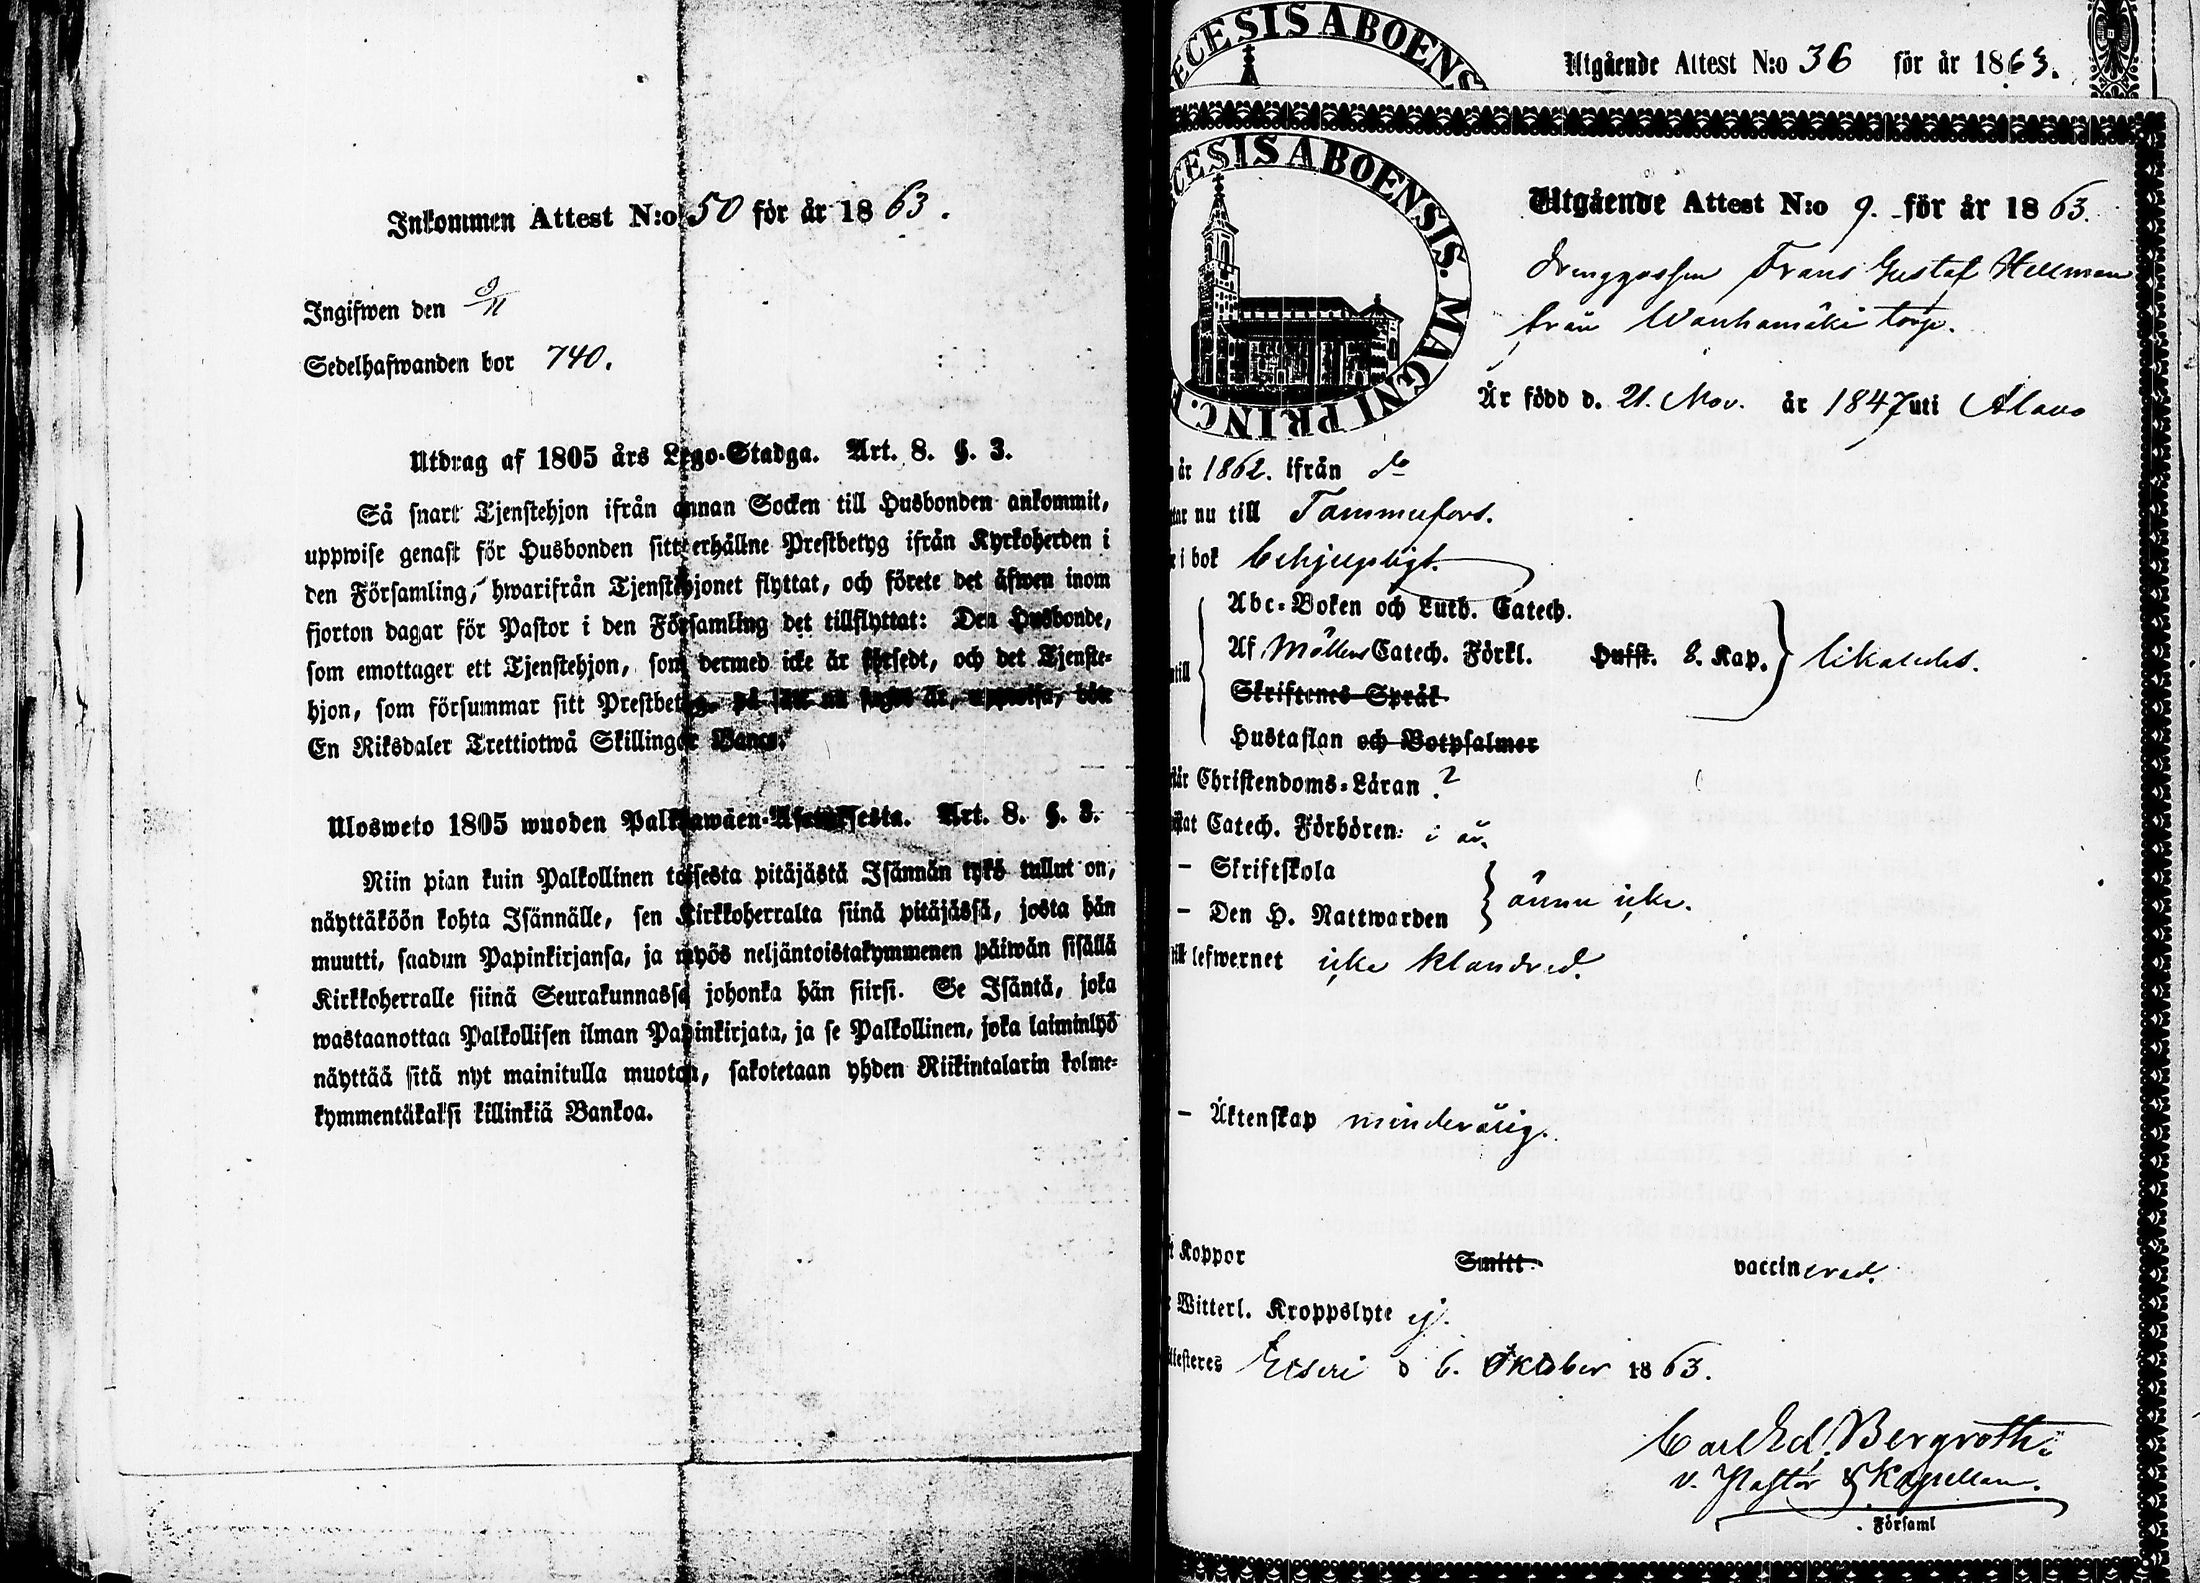 Inkommen Attest N:o 50 för år 1863.
Ingifwen den 9/11
Sedelhafwanden bor 740.
Utdrag af 1805 års Lego-Stadga. Art. 8. §. 3.
Så snart Tjenstehjon ifrån annan Socken till Husbonden ankommit,
uppwise genast för Husbonden sitt erhållne Prestbetyg ifrån Kyrkoherden i
den Församling, hwarifrån Tjenstehjonet flyttat, och förete det äfwen inom
fjorton dagar för Pastor i den Församling det tillflyttat: Den Husbonde,
som emottager ett Tjenstehjon, som dermed icke är försedt, och det Tjenste-
hjon, som försummar sitt Prestbetyg, på sätt nu sagdt är, uppwisa, böte
En Riksdaler Trettiotwå Skillingar Banco.
Ulosweto 1805 wuoden Palkkawäen-Asetuksesta. Art. 8. §. 3.
Niin pian kuin Palkollinen toisesta pitäjästä Isännän tykö tullut on,
näyttäköön kohta Isännälle, sen Kirkkoherralta siinä pitäjässä, josta hän
muutti, saadun Papinkirjansa, ja myös neljäntoistakymmenen päiwän sisällä
Kirkkoherralle siinä Seurakunnassa johonka hän siirsi. Se Isäntä, joka
wastaanottaa Palkollisen ilman Papinkirjata, ja se Palkollinen, joka laiminlyö
näyttää sitä nyt mainitulla muotoa, sakotetaan yhden Riikintalarin kolme-
kymmentäkaksi killinkiä Bankoa.
ECESIS ABOENS
Utgående Attest N:o 36 för år 1863.
CESIS ABOENSIS. MAGNI PRINC. F
Utgående Attest N:o 9. för år 1863.
Drenggossen Frans Gustaf Hellman
från Wanhamäki torp.
Är född d. 21. Nov. år 1847 uti Alavo
år 1862. ifrån do
nu till Tammerfors.
i bok behjelpligt.
Abc-Boken och Luth. Catech.
Af Möllers Catech. Förkl. Hufst. 8. Kap. } likaledes.
Skriftenes Språk
Hustaflan och Botpsalmer
Christendoms-Läran ?
Catech. Förhören: i år.
– Skriftskola
– Den H. Nattwarden } ännu icke.
lefwernet icke klandrad.
– Äktenskap minderårig.
Koppor Smitt vaccinerad.
Witterl. Kroppslyte ej.
Etseri d 6. Oktober 1863.
Carl Ed. Bergroth
v. Pastor & Kapellan.
Församl